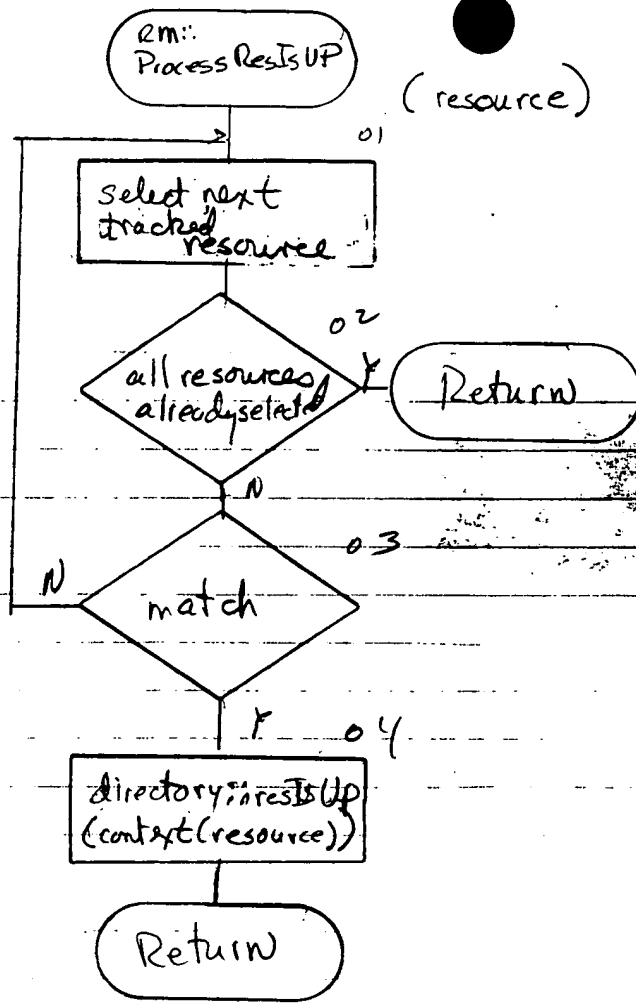 Rm::
ProcessResIsUP
(resource)
01
select next
tracked
resource
02
all resources
already selected
Y
Return
N
03
match
N
Y
04
directory::resIsUp
(context(resource))
Return